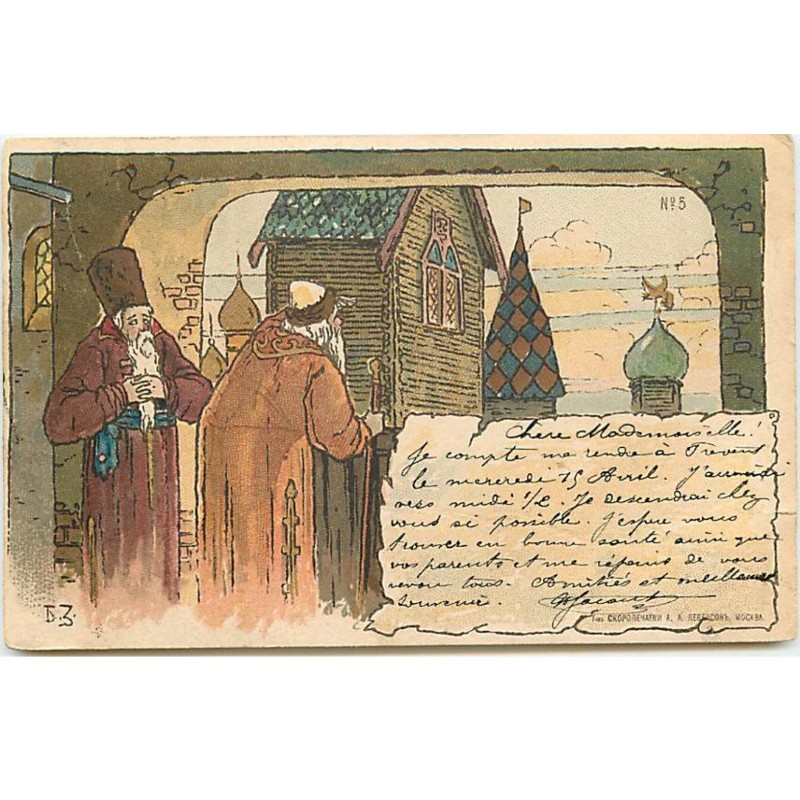 № 5
Chère Mademoiselle!
Je compte me rendre à
le mercredi 15 Avril. J'arriverai
vers midi ½. Je descendrai chez
vous si possible. J'espère vous
trouver en bonne santé ainsi que
vos parents et me réjouis de vous
revoir tous. Amitiés et meilleurs
souvenirs.
Б.З.
Т-во СКОРОПЕЧАТНИ А. А. ЛЕВЕНСОНЪ, МОСКВА.